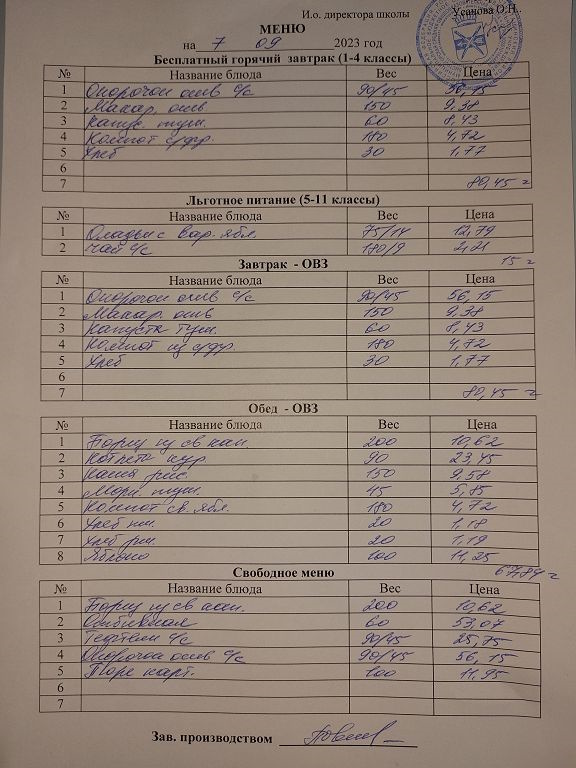 И.о. директора школы Усанова О.Н.
МЕНЮ
на 7 09 2023 год
Бесплатный горячий завтрак (1-4 классы)
№ Название блюда Вес Цена
1 Окорочок отв с/с 90/45 56,15
2 Макар. отв 150 9,38
3 Капус. туш. 60 8,43
4 Компот с/фр. 180 4,72
5 Хлеб 30 1,77
6
7 80,45
Льготное питание (5-11 классы)
№ Название блюда Вес Цена
1 Оладьи с вар. ябл. 75/14 12,79
2 Чай с/с 180/9 2,21
15
Завтрак - ОВЗ
№ Название блюда Вес Цена
1 Окорочок отв с/с 90/45 56,15
2 Макар. отв 150 9,38
3 Капуста туш. 60 8,43
4 Компот из с/фр. 180 4,72
5 Хлеб 30 1,77
6
7 80,45
Обед - ОВЗ
№ Название блюда Вес Цена
1 Борщ из св кап 200 10,62
2 Котлета кур 90 23,45
3 Каша рис. 150 9,58
4 Морк. туш. 45 5,85
5 Компот св. ябл. 180 4,72
6 Хлеб пш. 20 1,18
7 Хлеб рж. 20 1,19
8 Яблоко 100 11,25
67,84
Свободное меню
№ Название блюда Вес Цена
1 Борщ из св кап. 200 10,62
2 60 53,07
3 Тефтели с/с 90/45 25,75
4 Окорочок отв с/с 90/45 56,15
5 Пюре карт. 100 11,95
6
7
Зав. производством